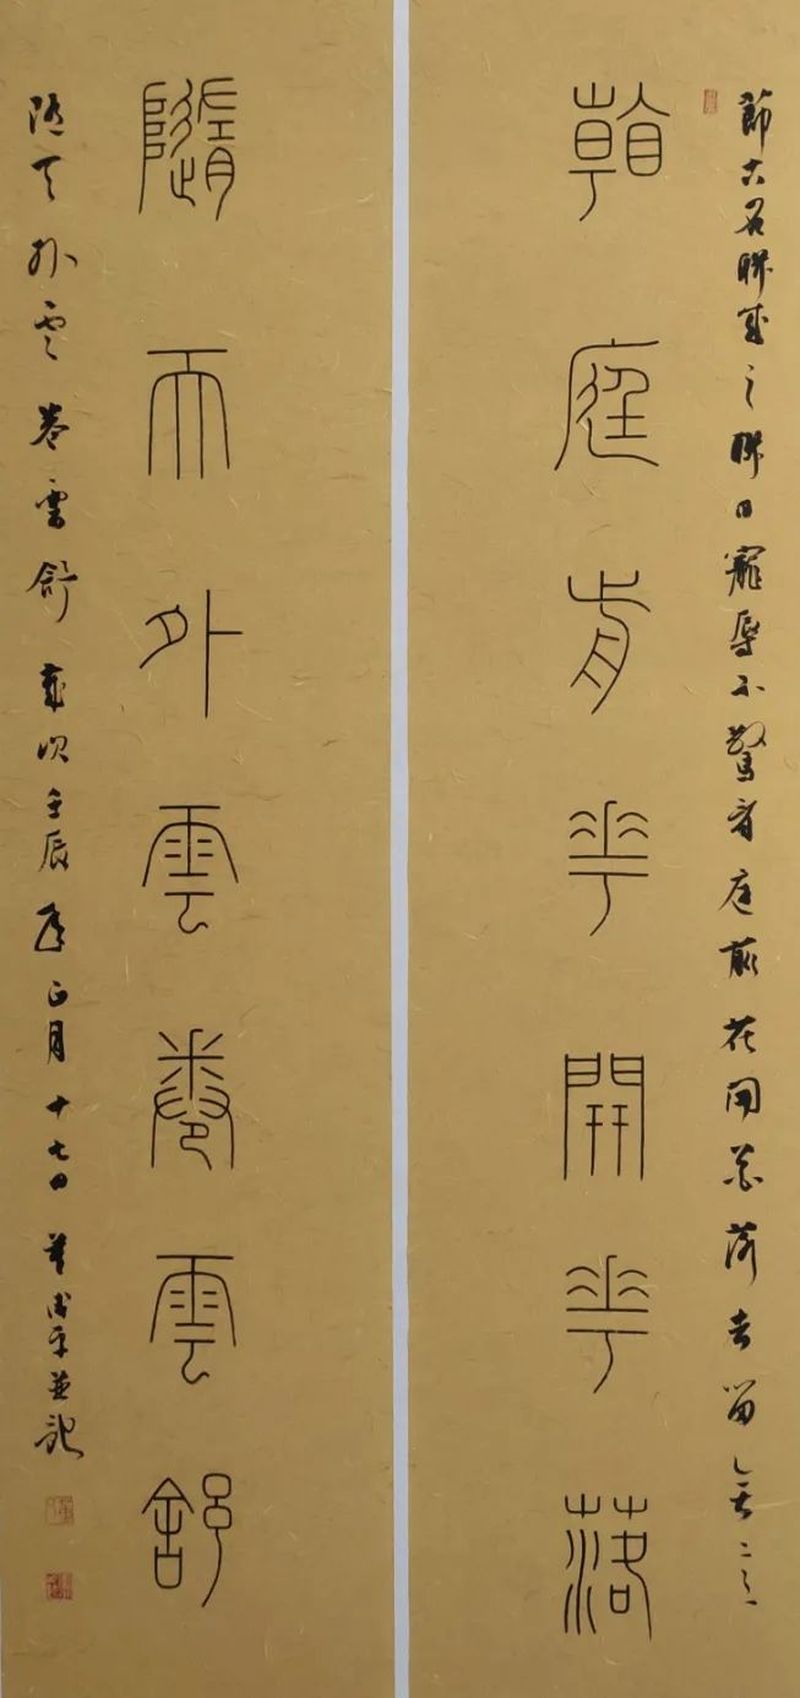 節古名聯成之聯曰寵辱不驚看庭前花開花落去留無意
看庭前花開花落
隨天外雲卷雲舒
隨天外雲卷雲舒歲次壬辰年正月十七日並記